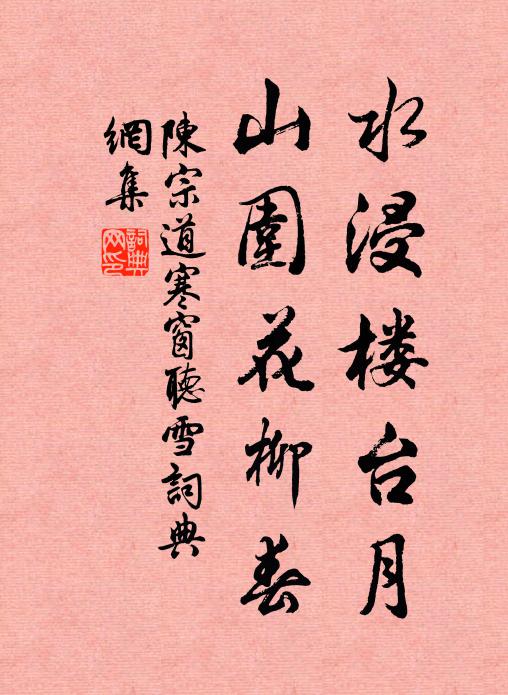 水浸楼台月
山圍花柳春
陳宗道寒窗聽雪詞典
網集
詞典網印